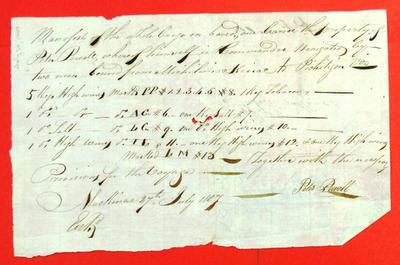 Manifest of the whole Cargo on board and the property of
Peter Powell, whereof himself is Commander Navigated by
two men bound from Michilimackinac to
5 Keg High wines Marked PP № 1.2.3.4.5 & 8. 1 Keg Tobacco
1 Do do do AG № 6. one Keg Salt 7.
1 Do Salt Do LG № 9. one Do High wines № 10
1 Do High wines Do IL № 11. one Keg High wines № 12 & one Keg High wines
Marked LM № 13 Together with the necessary
Provisions for the voyage
Mackinac 27th July 1807
Peter Powell